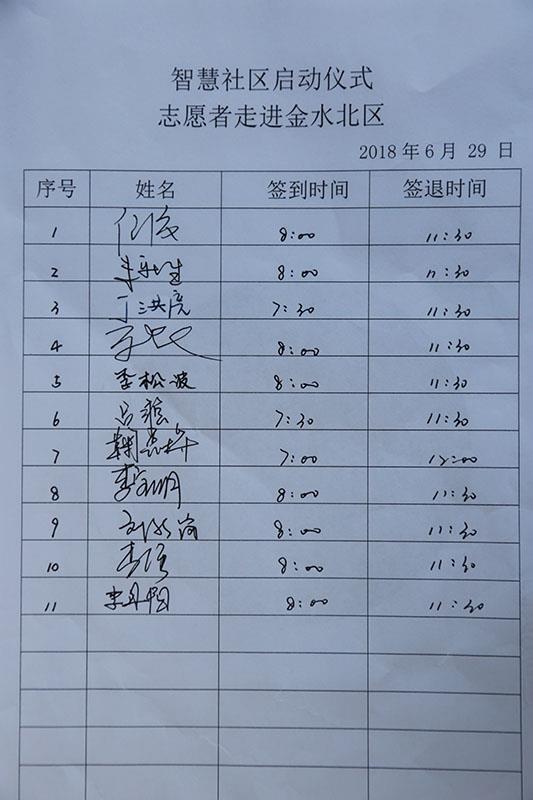 智慧社区启动仪式
志愿者走进金水北区
2018 年 6 月 29 日
序号 姓名 签到时间 签退时间
1 8:00 11:30
2 8:00 11:30
3 丁洪亮 7:30 11:30
4 8:00 11:30
5 李松波 8:00 11:30
6 7:30 11:30
7 7:00 12:00
8 8:00 11:30
9 8:00 11:30
10 8:00 11:30
11 8:00 11:30